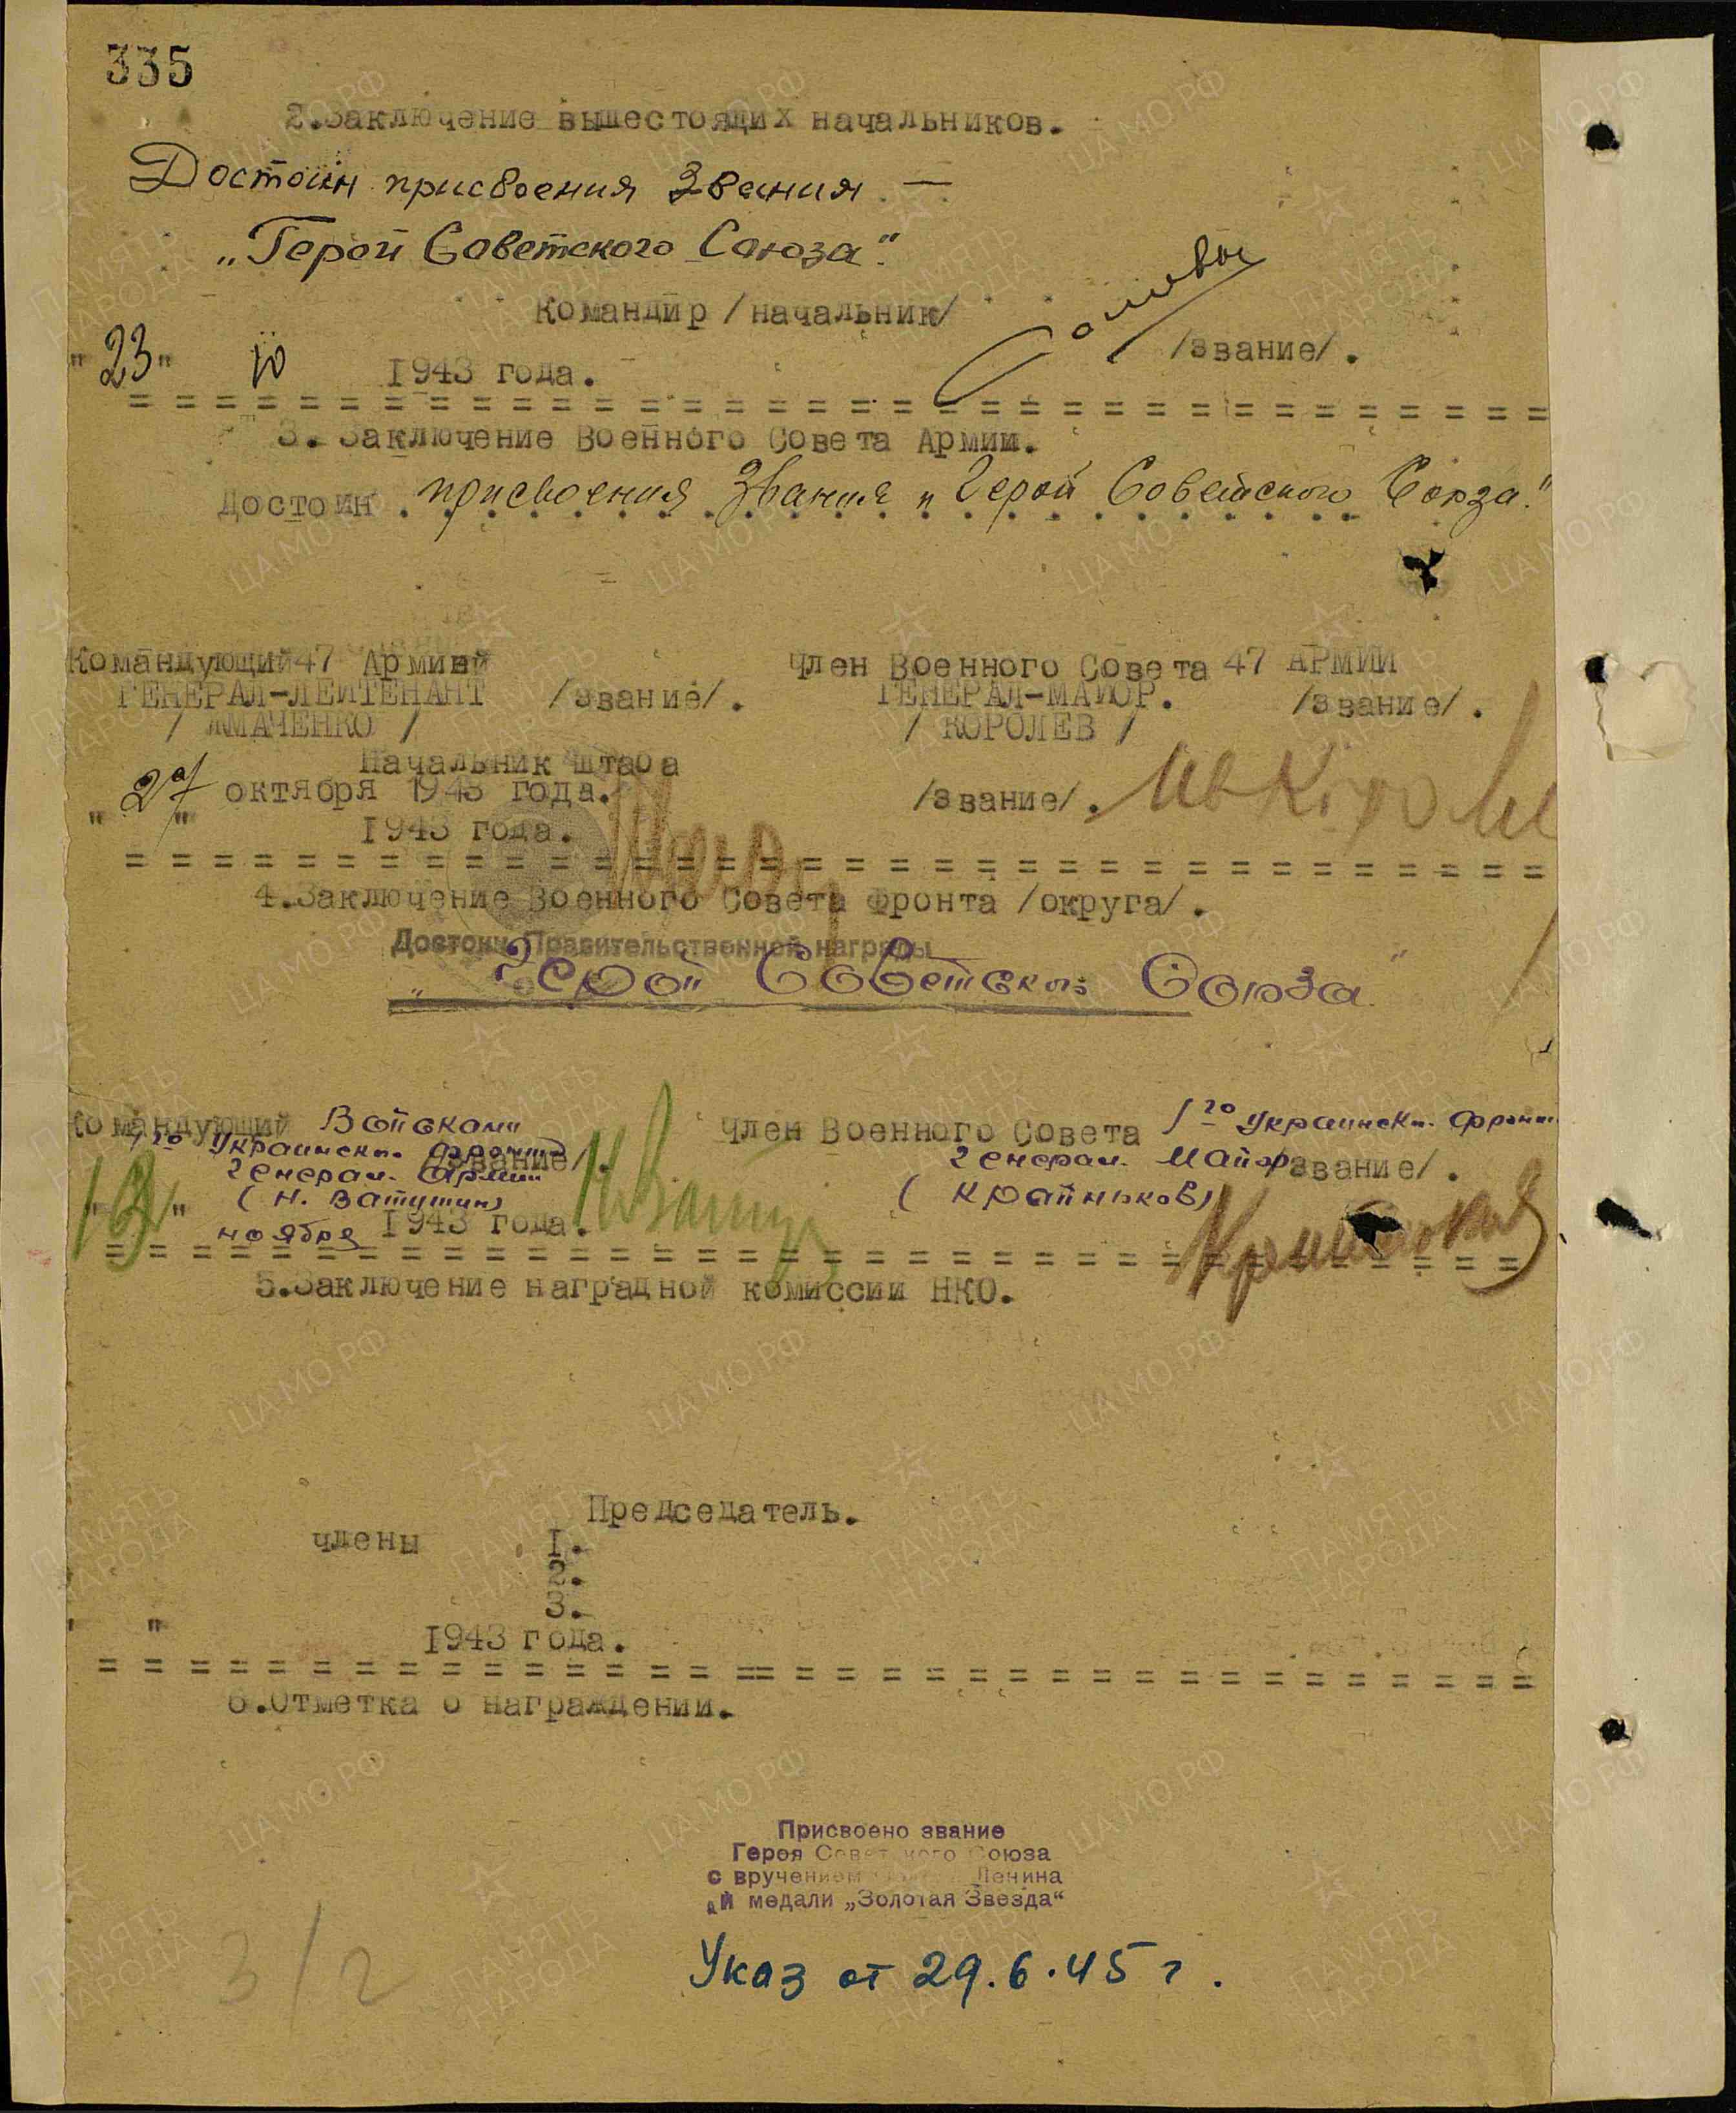 335
2.Заключение вышестоящих начальников.
Достоин присвоения звания —
„Герой Советского Союза".
Командир /начальник/
/звание/.
"23" 10 1943 года.
3. Заключение Военного Совета Армии.
Достоин присвоения звания „Герой Советского Союза."
Командующий 47 Армией
ГЕНЕРАЛ-ЛЕЙТЕНАНТ /звание/.
/ ЖМАЧЕНКО /
Член Военного Совета 47 АРМИИ
ГЕНЕРАЛ-МАЙОР. /звание/.
/ КОРОЛЕВ /
Начальник штаба
"27" октября 1943 года.
/звание/.
1943 года.
4.Заключение Военного Совета Фронта /округа/.
Достоин Правительственной награды
„Герой Советского Союза"
Командующий Войсками
1го Украинск. фронта
Генерал Армии /звание/.
(Н. Ватутин)
"13" ноября 1943 года.
Член Военного Совета 1го Украинск. фронта
Генерал Майор /звание/.
(Крайнюков)
5.Заключение наградной комиссии НКО.
Председатель.
члены 1.
2.
3.
" " 1943 года.
6.Отметка о награждении.
Присвоено звание
Героя Советского Союза
с вручением Ленина
и медали „Золотая Звезда"
Указ от 29.6.45 г.
3/2
ЦА МО РФ
ПАМЯТЬ НАРОДА